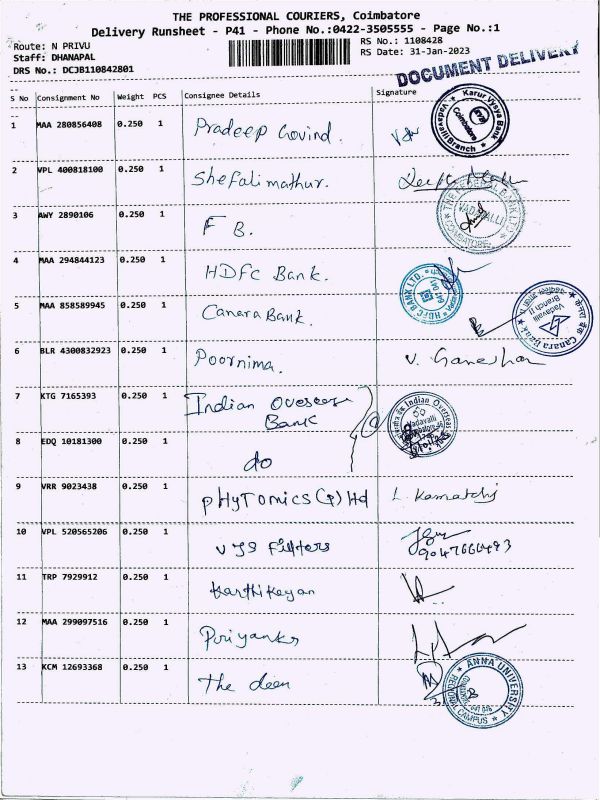 THE PROFESSIONAL COURIERS, Coimbatore
Delivery Runsheet - P41 - Phone No.:0422-3505555 - Page No.:1
Route: N PRIVU
RS No.: 1108428
Staff: DHANAPAL
RS Date: 31-Jan-2023
DRS No.: DCJB110842801
DOCUMENT DELIVERY
S No Consignment No Weight PCS Consignee Details Signature
1 MAA 280856408 0.250 1 Pradeep Govind.
Karur Vysya Bank
Coimbatore
Vadavalli Branch
2 VPL 400818100 0.250 1 Shefali mathur.
3 AWY 2890106 0.250 1 F B.
THE FEDERAL BANK LTD
VADAVALLI
COIMBATORE
4 MAA 294844123 0.250 1 HDFC Bank.
HDFC BANK LTD.
5 MAA 858589945 0.250 1 Canara Bank.
Canara Bank
केनरा बैंक
Vadavalli
Branch II
6 BLR 4300832923 0.250 1 Poornima. V. Ganeshan
7 KTG 7165393 0.250 1 Indian Overseas
Bank
Indian Overseas
Vadavalli
8 EDQ 10181300 0.250 1 do
9 VRR 9023438 0.250 1 PHYTOMICS (P) ltd L. Kamatchi
10 VPL 520565206 0.250 1 VJS Filters
9047666493
11 TRP 7929912 0.250 1 Karthikeyan
12 MAA 299097516 0.250 1 Priyanka
13 KCM 12693368 0.250 1 The deen
ANNA UNIVERSITY
REGIONAL CAMPUS